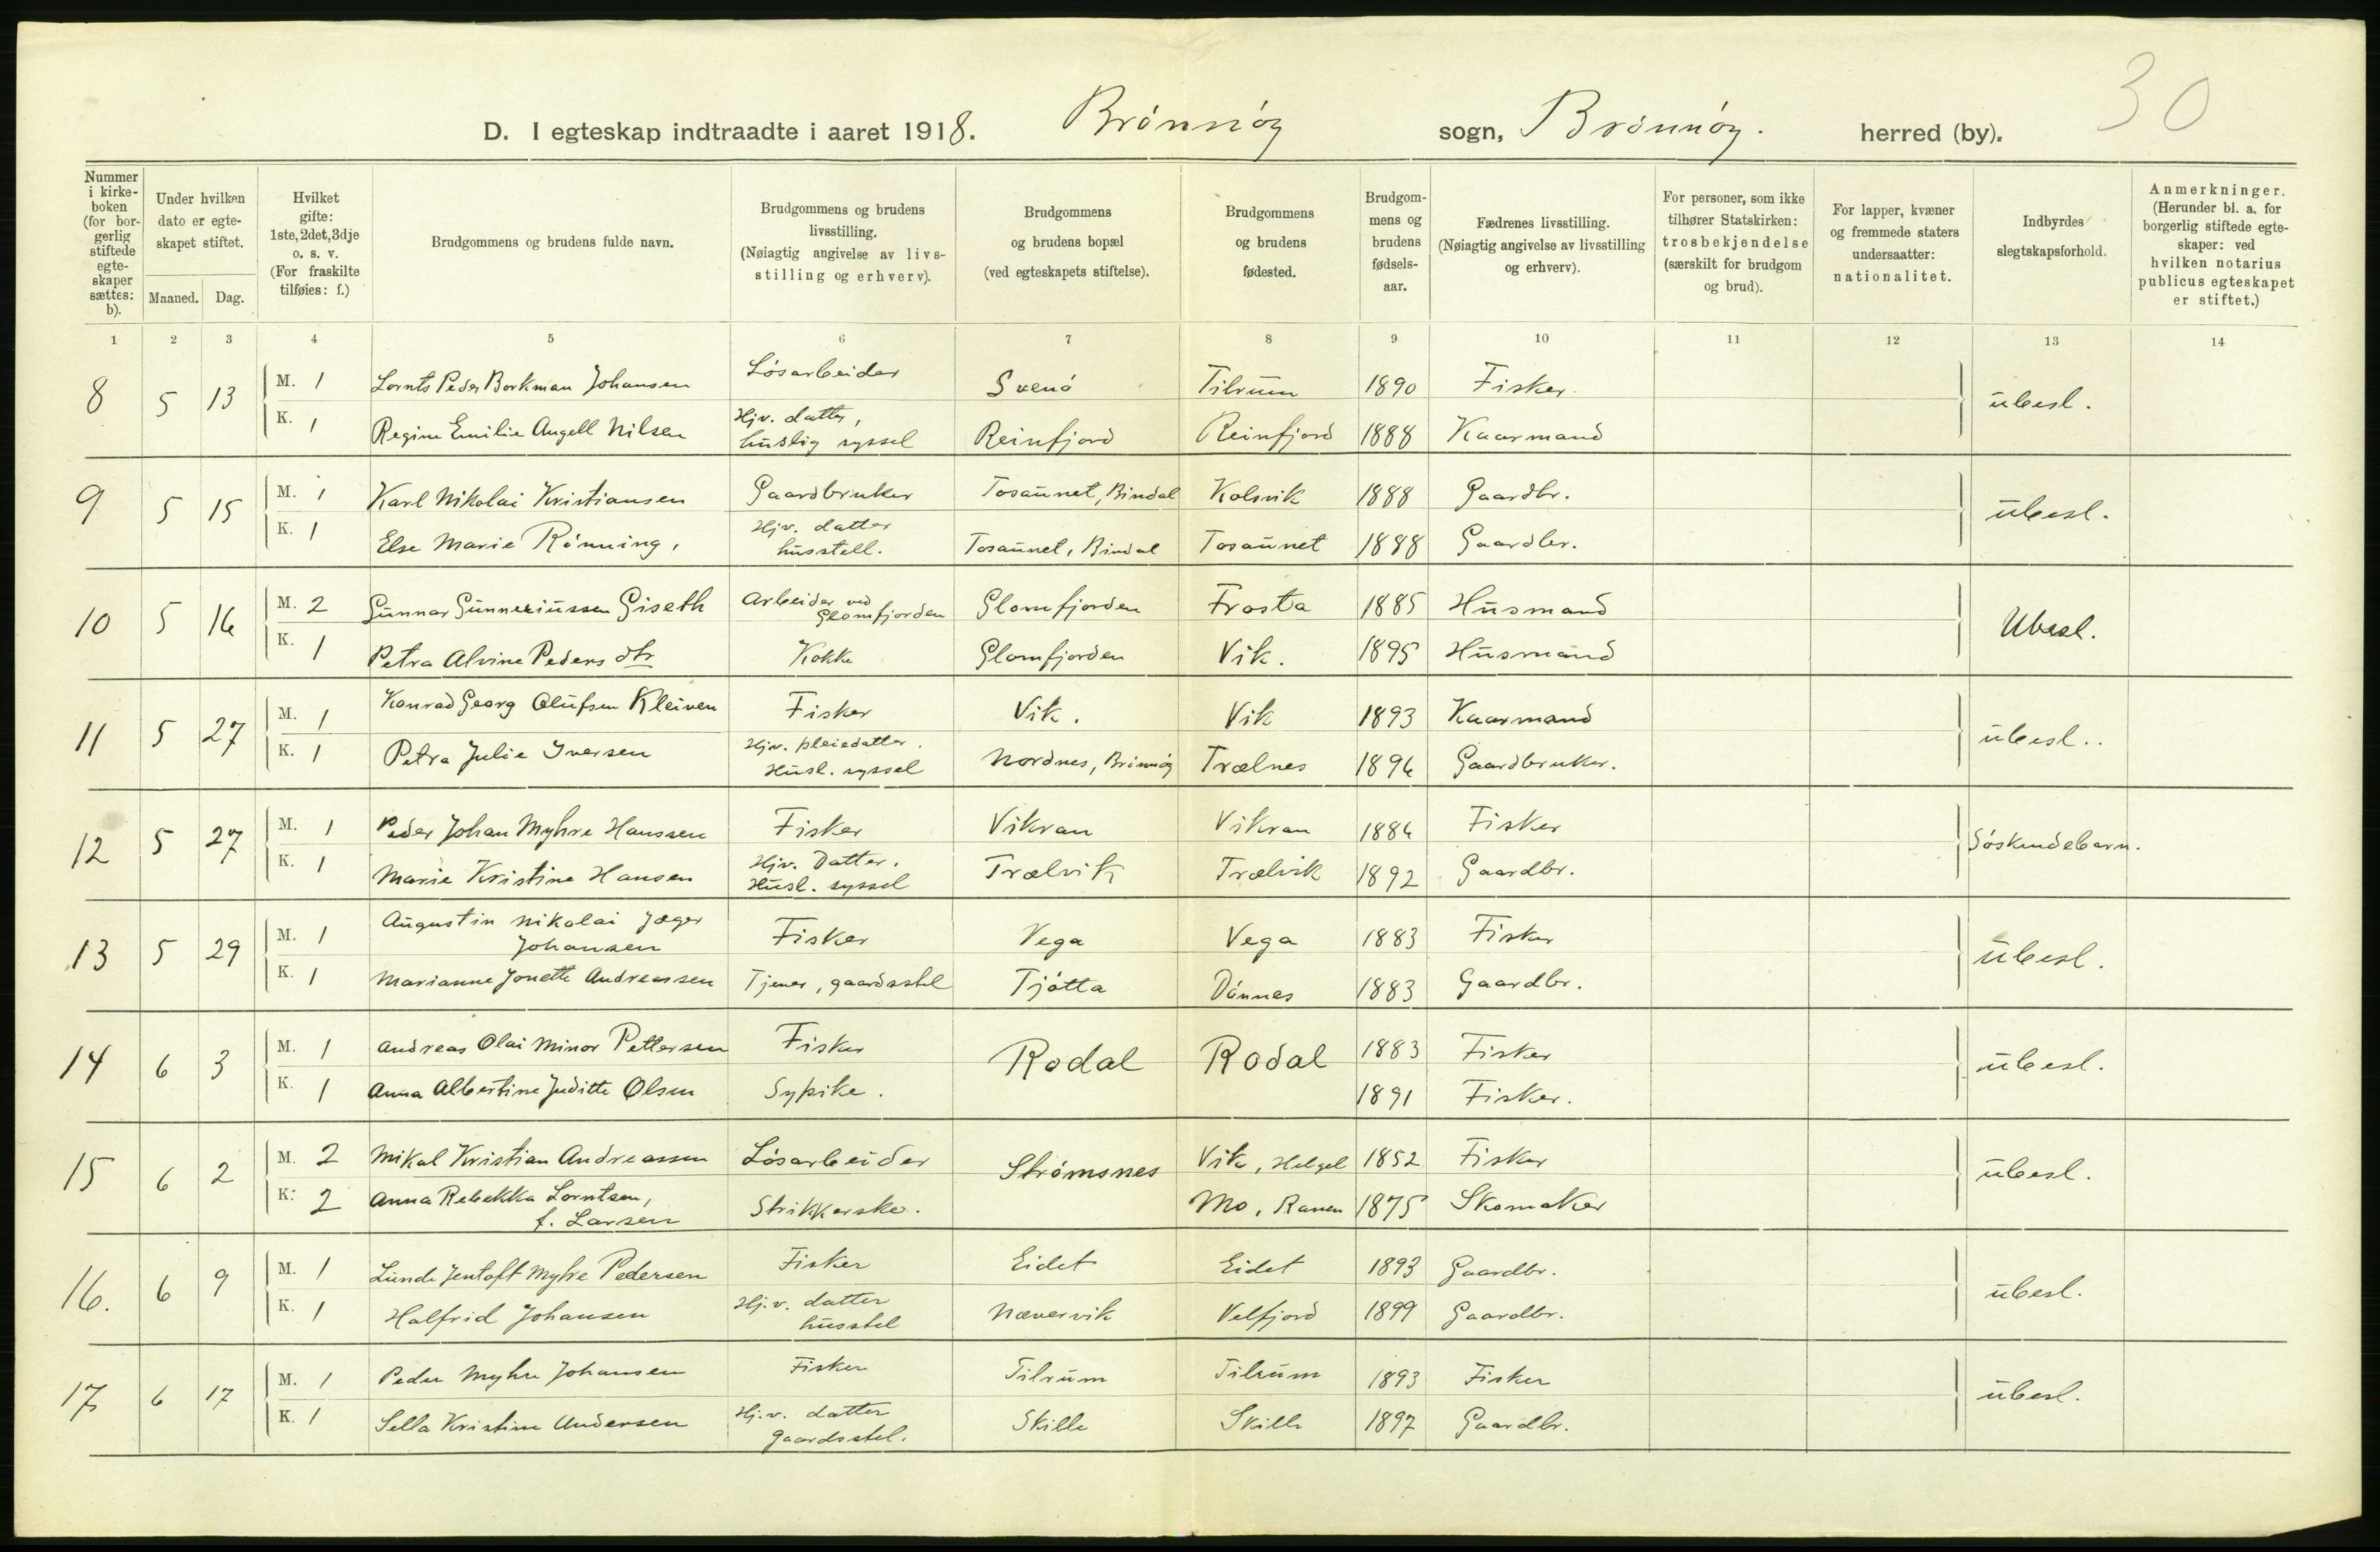 30
D. I egteskap indtraadte i aaret 1918. Brönnöy sogn, Brönnöy. herred (by).
Nummer i kirke-boken (for bor-gerlig stiftede egte-skaper sættes: b).
Under hvilken dato er egte-skapet stiftet.
Maaned. Dag.
Hvilket gifte: 1ste, 2det, 3dje o. s. v. (For fraskilte tilføies: f.)
Brudgommens og brudens fulde navn.
Brudgommens og brudens livsstilling. (Nøiagtig angivelse av livs-stilling og erhverv).
Brudgommens og brudens bopæl (ved egteskapets stiftelse).
Brudgommens og brudens fødested.
Brudgom-mens og brudens fødsels-aar.
Fædrenes livsstilling. (Nøiagtig angivelse av livsstilling og erhverv).
For personer, som ikke tilhører Statskirken: trosbekjendelse (særskilt for brudgom og brud).
For lapper, kvæner og fremmede staters undersaatter: nationalitet.
Indbyrdes slegtskapsforhold.
Anmerkninger. (Herunder bl. a. for borgerlig stiftede egte-skaper: ved hvilken notarius publicus egteskapet er stiftet.)
1 2 3 4 5 6 7 8 9 10 11 12 13 14
8 5 13 M. 1 Lornts Peder Borkman Johansen Lösarbeider Svenö Tilrum 1890 Fisker ubesl.
K. 1 Regine Emilie Angell Nilsen Hjv. datter, huslig syssel Reinfjord Reinfjord 1888 Kaarmand
9 5 15 M. 1 Karl Nikolai Kristiansen Gaardbruker Tosaunet, Bindal Kolsvik 1888 Gaardbr. ubesl.
K. 1 Else Marie Rönning, Hjv. datter husstell. Tosaunet, Bindal Tosaunet 1888 Gaardbr.
10 5 16 M. 2 Gunnar Gunneriussen Giseth Arbeider ved Glomfjorden Glomfjorden Frosta 1885 Husmand Ubesl.
K. 1 Petra Alvine Pedersdtr Kokke Glomfjorden Vik. 1895 Husmand
11 5 27 M. 1 Konrad Georg Olufsen Kleiven Fisker Vik. Vik 1893 Kaarmand ubesl..
K. 1 Petra Julie Iversen Hjv. pleiedatter. Husl. syssel Nordnes, Brönnöy Trælnes 1896 Gaardbruker.
12 5 27 M. 1 Peder Johan Myhre Hanssen Fisker Vikran Vikran 1886 Fisker Söskendebarn.
K. 1 Marie Kristine Hansen Hjv. Datter. Husl. syssel Trælvik Trælvik 1892 Gaardbr.
13 5 29 M. 1 Augustin Nikolai Jæger Johansen Fisker Vega Vega 1883 Fisker ubesl.
K. 1 Marianne Jonette Andreassen Tjener, gaardsstel Tjötta Dönnes 1883 Gaardbr.
14 6 3 M. 1 Andreas Olai Minor Pettersen Fisker Rodal Rodal 1883 Fisker ubesl.
K. 1 Anna Albertine Juditte Olsen Sypike. 1891 Fisker.
15 6 2 M. 2 Mikal Kristian Andreassen Lösarbeider Strömsnes Vik, Helgel 1852 Fisker ubesl.
K. 2 Anna Rebekka Lorntsen, f. Larsen Strikkerske. Mo, Ranen 1875 Skomaker
16. 6 9 M. 1 Lunde Jentoft Myhre Pedersen Fisker Eidet Eidet 1893 Gaardbr. ubesl.
K. 1 Halfrid Johansen Hj.v. datter husstel Nævervik Velfjord 1899 Gaardbr.
17 6 17 M. 1 Peder Myhre Johansen Fisker Tilrum Tilrum 1893 Fisker ubesl.
K. 1 Sella Kristine Andersen Hj.v. datter gaardsstel. Skille Skille 1897 Gaardbr.